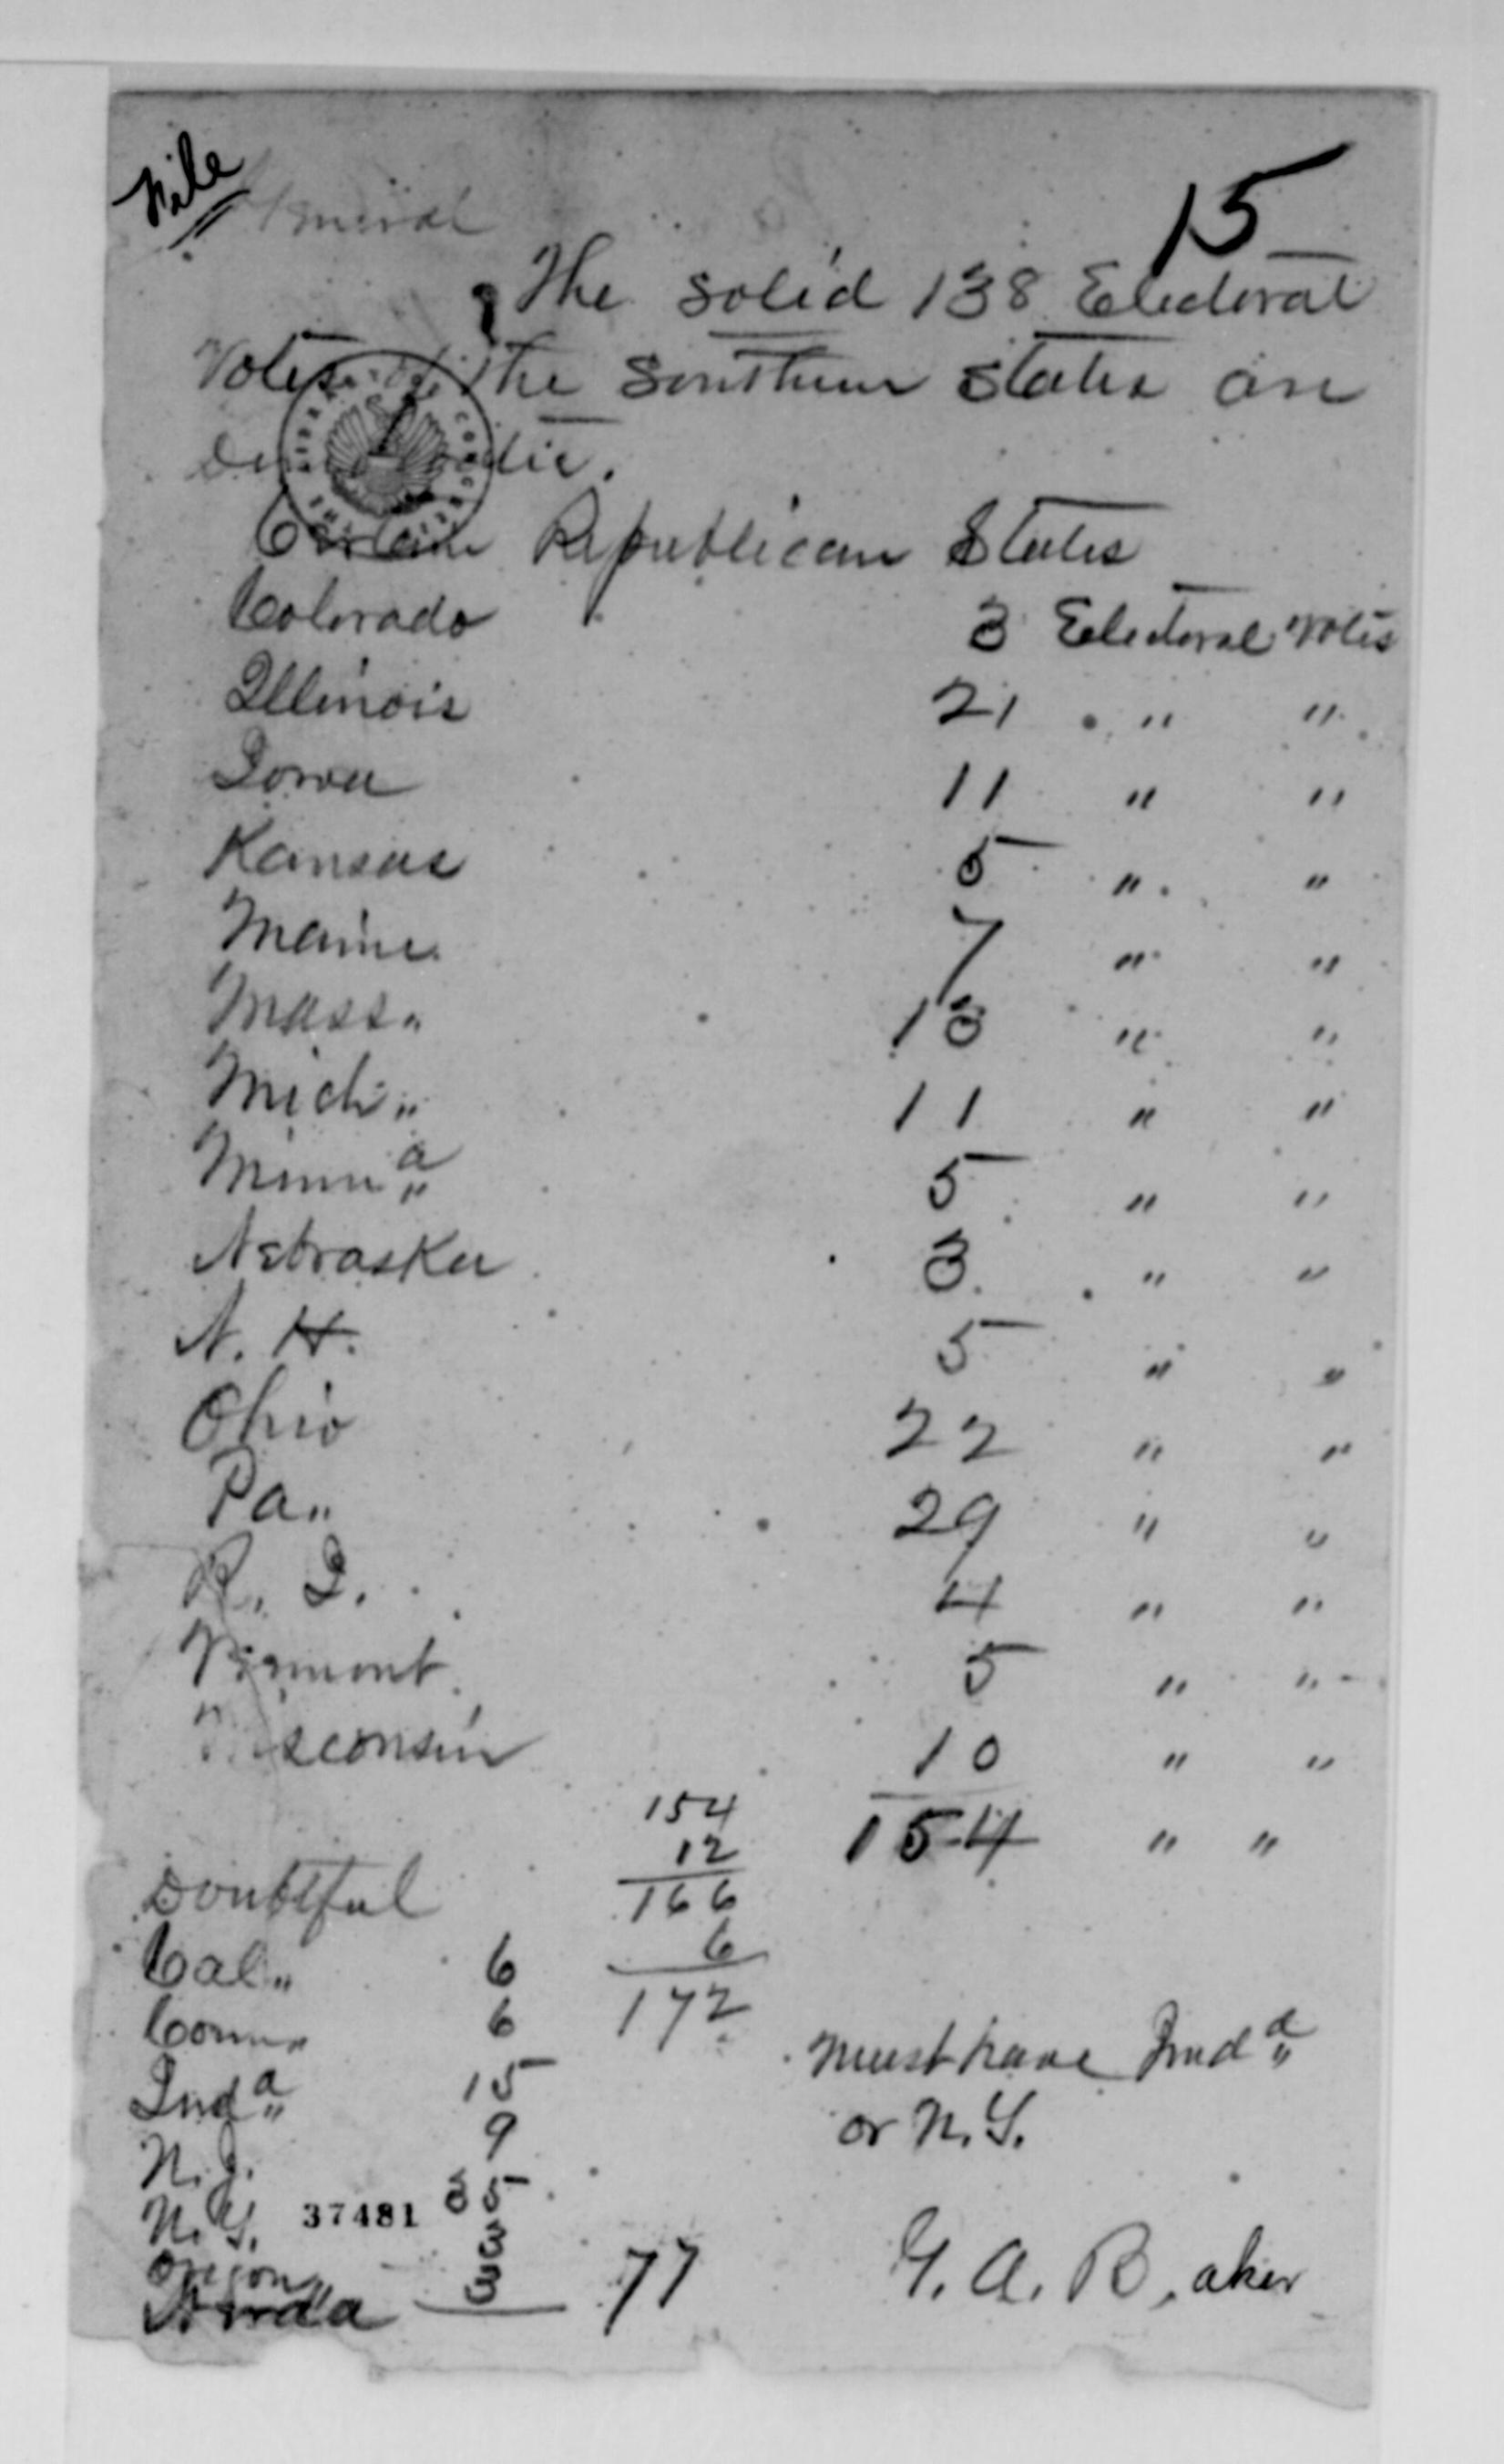 File
General
15
The solid 138 Electoral
Votes of the Southern States are
Democratic.
Certain Republican States
Colorado 3 Electoral Votes
Illinois 21 " "
Iowa 11 " "
Kansas 5 " "
Maine 7 " "
Mass. 13 " "
Mich. 11 " "
Minna 5 " "
Nebraska 3 " "
N. H. 5 " "
Ohio 22 " "
Pa. 29 " "
R. I. 4 " "
Vermont 5 " "
Wisconsin 10 " "
154 154 " "
12
Doubtful 166
6
Cal. 6 172
Conn. 6 must have Inda
Inda 15 or N.Y.
N. J. 9
N. Y. 37481 35
Oregon 3
Nevada 3 77 G. A. B. aker